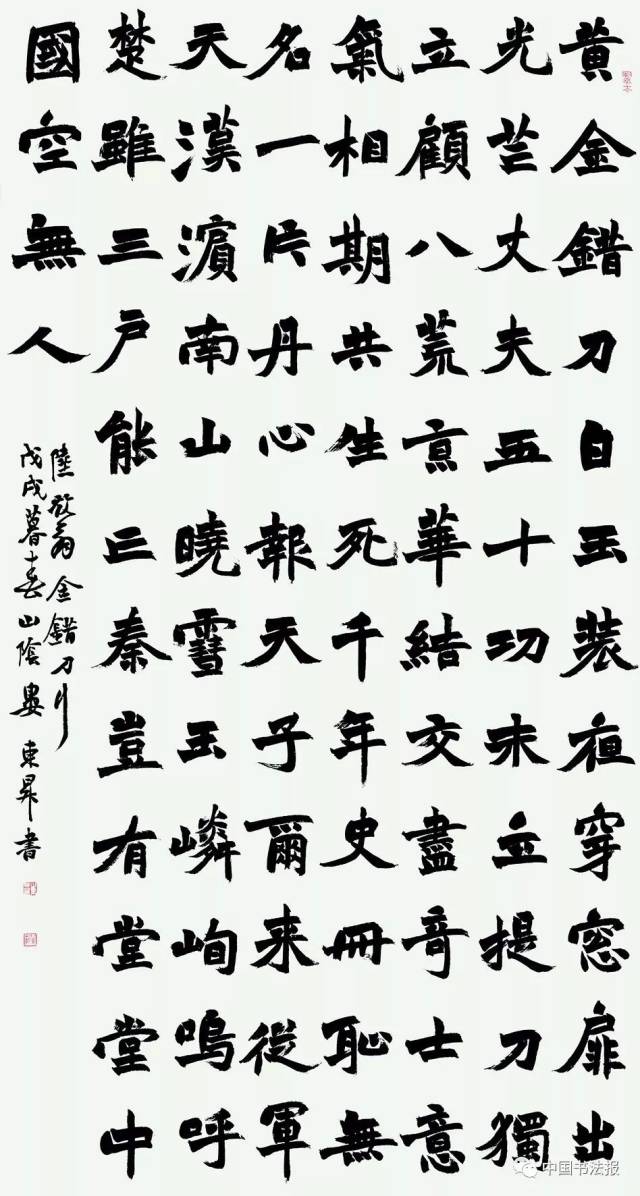 黄金錯刀白玉装夜穿窓扉出
光芒丈夫五十功未立提刀獨
立顧八荒京華結交盡奇士意
氣相期共生死千年史冊恥無
名一片丹心報天子爾来從軍
天漢濱南山曉雪玉嶙峋嗚呼
楚雖三户能亡秦豈有堂堂中
國空無人
陸放翁金錯刀行
戊戌暮春山陰婁東昇書
中国书法报